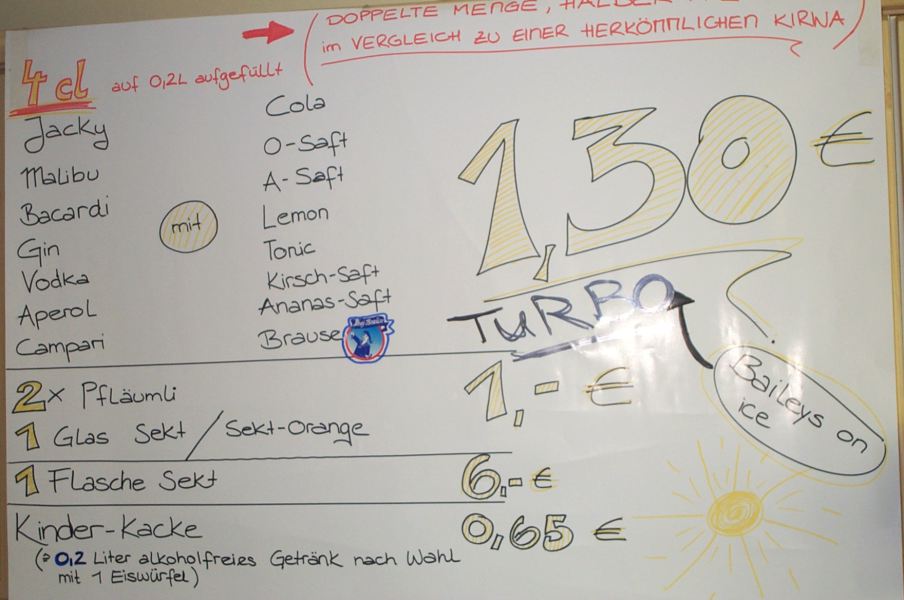 DOPPELTE MENGE,
im VERGLEICH ZU EINER HERKÖMMLICHEN KIRWA
4 cl auf 0,2L aufgefüllt
Jacky
Malibu
Bacardi
Gin
Vodka
Aperol
Campari
mit
Cola
O-Saft
A-Saft
Lemon
Tonic
Kirsch-Saft
Ananas-Saft
Brause
1,30 €
TURBO
Baileys on
ice
2x Pfläumli
1 Glas Sekt / Sekt-Orange
1,- €
1 Flasche Sekt 6,- €
Kinder-Kacke 0,65 €
(⇒ 0,2 Liter alkoholfreies Getränk nach Wahl
mit 1 Eiswürfel)